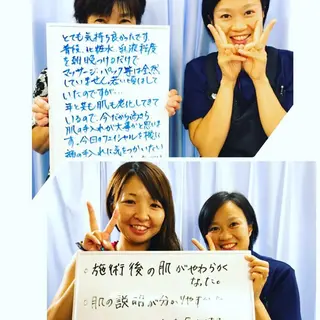 とても気持ち良かったです。
普段、化粧水、乳液程度
を朝晩つけるだけで
マッサージ、パック等は全然
していません。若い頃はして
いたのですが…
年と共に肌も老化してきて
いるので、今だから尚更
肌の手入れが大事かと思いま
す。今日のフェイシャルを機に
顔の手入れに気をつけたい
施術後の肌がやわらかく
なった。
肌の説明が分かりやす